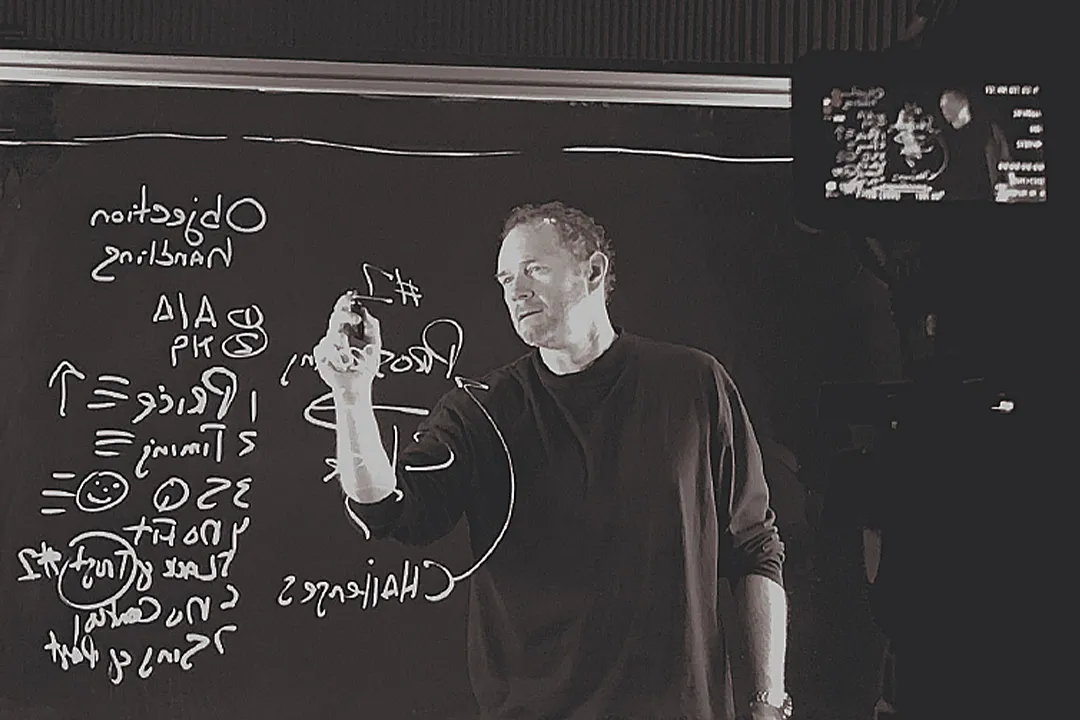 Objection
Handling
① A/A
② PK
1 Price
2 Timing
3 S Q
4 No Fit
5 Lack of Trust #2
6 No Control
7 Sins of Past
#1
Challenges